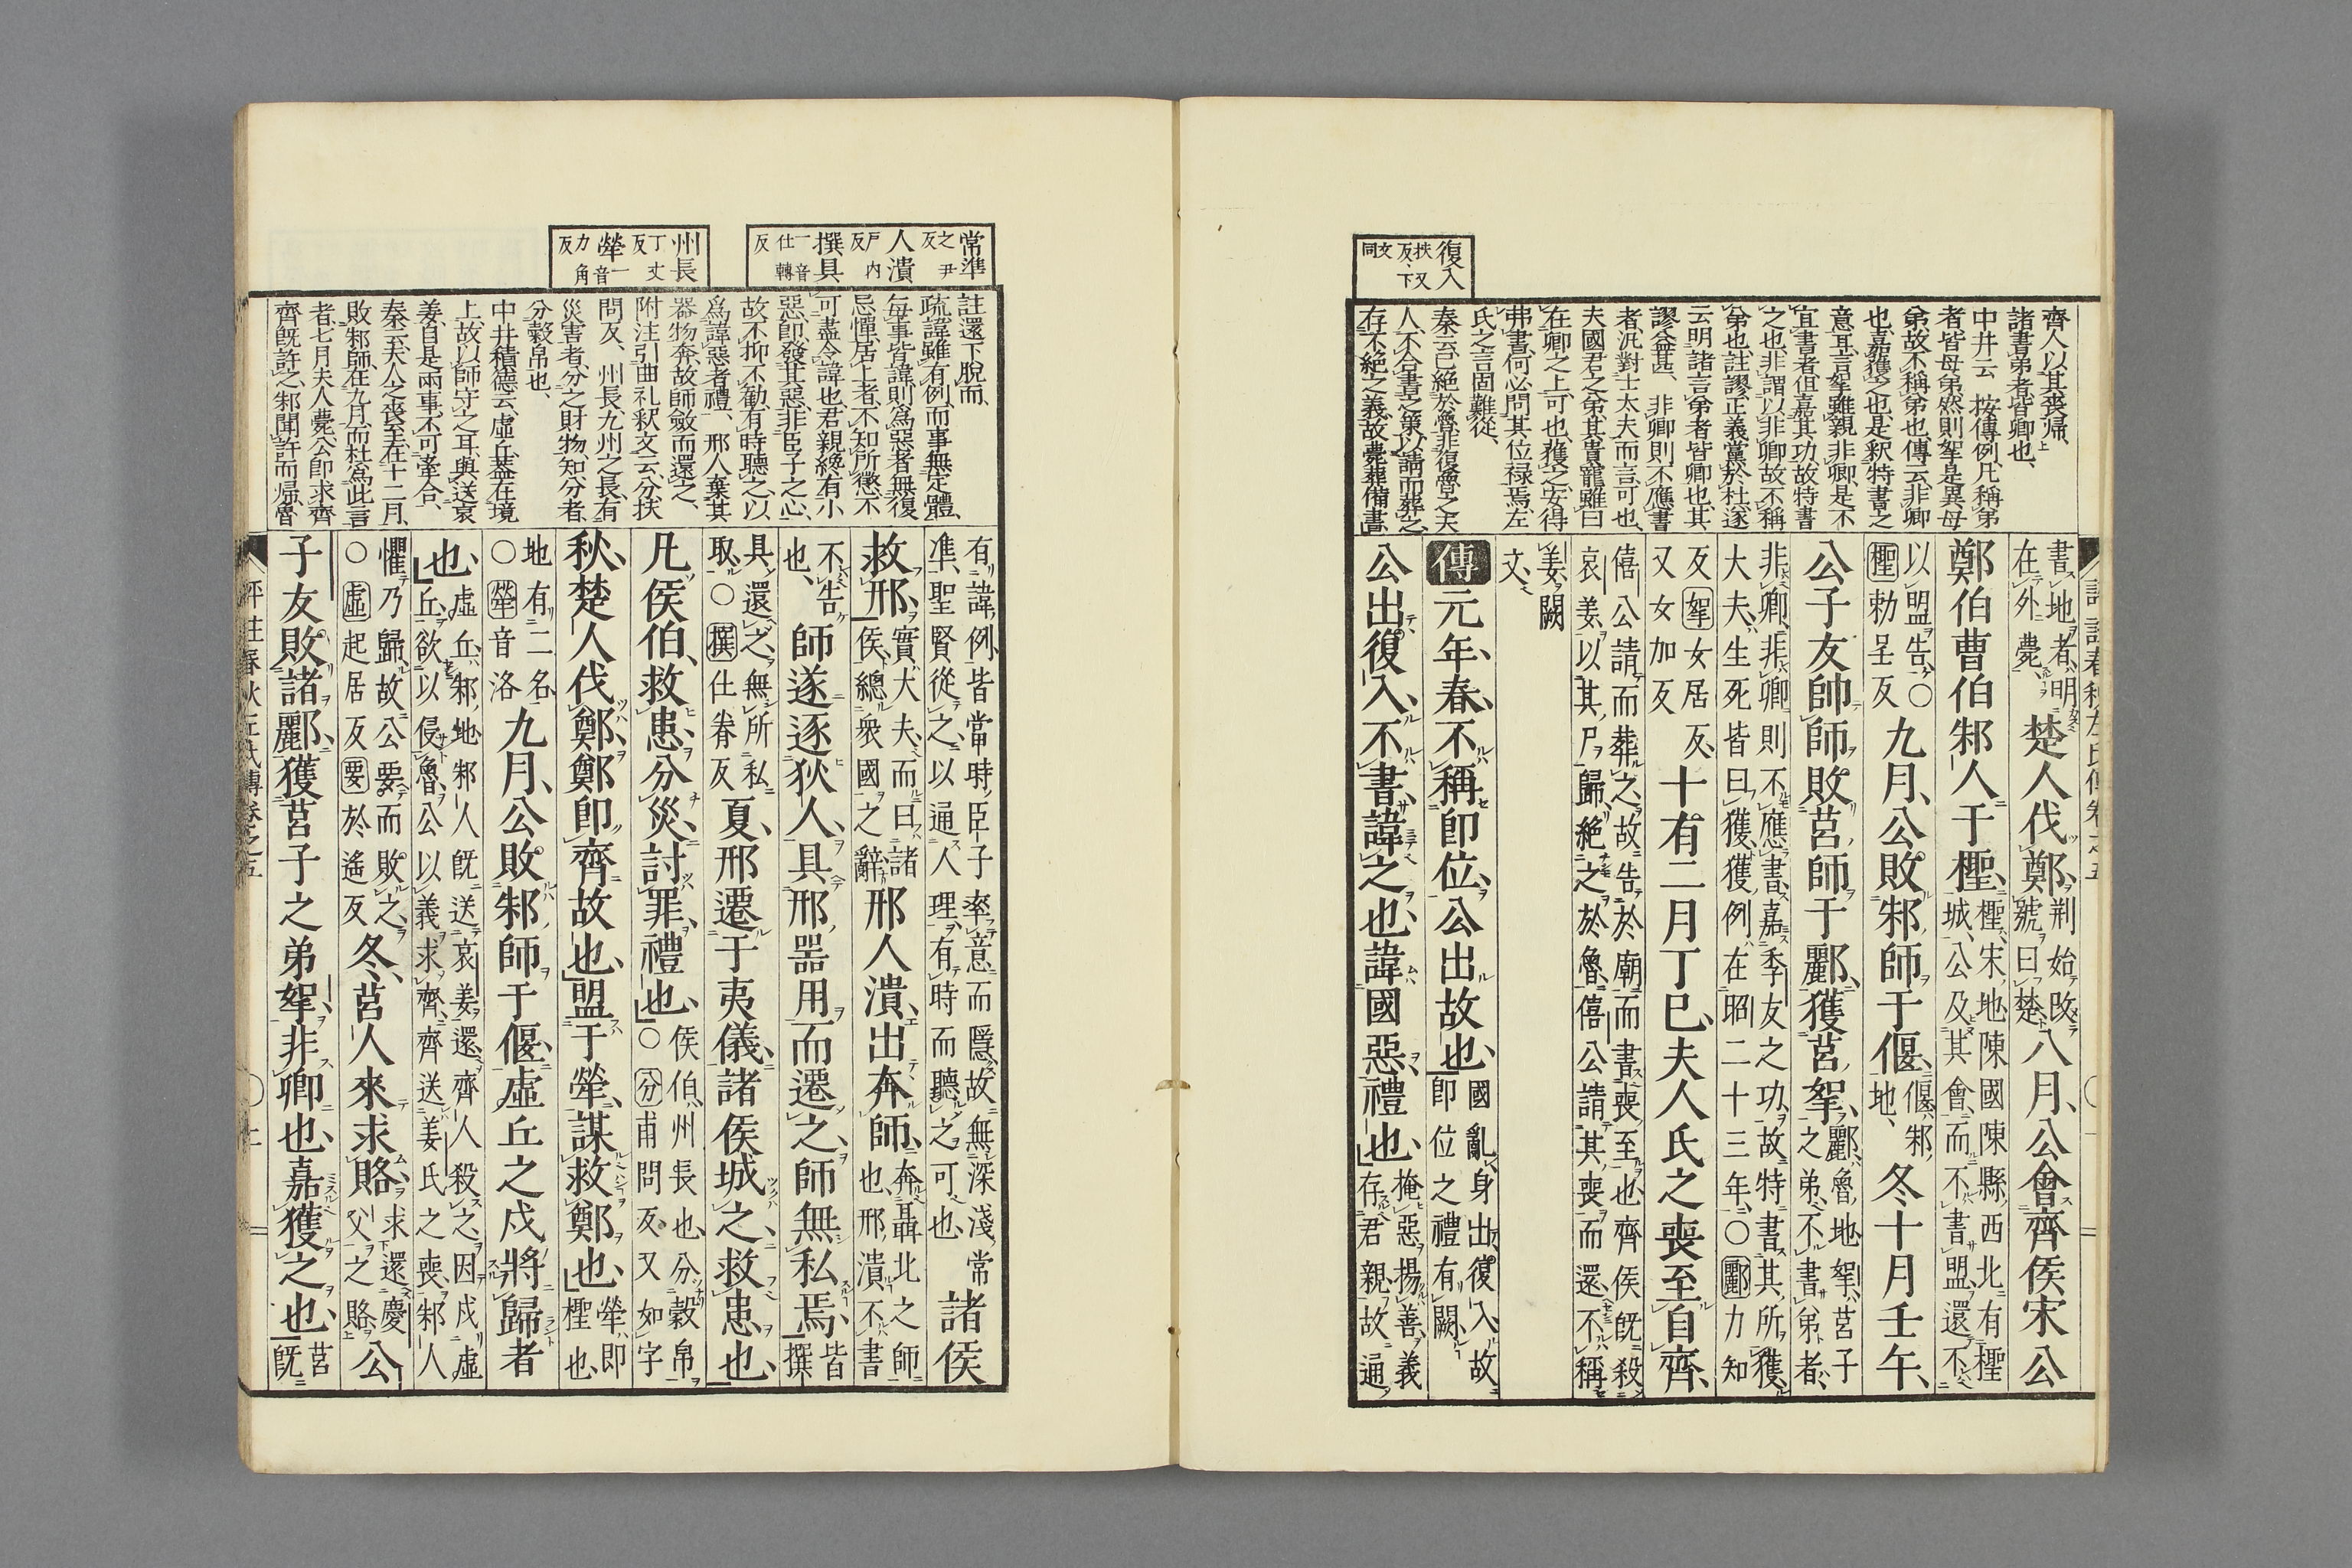 復入扶又反、下文同
齊人以其喪歸、
諸書弟者皆卿也、
中井云 按傳例凡稱弟
者皆母弟然則挐是異母
弟故不稱弟也傳云非卿
也嘉獲之也是釈特書之
意耳言挐雖親非卿是不
宜書者但嘉其功故特書
之也非謂以非卿故不稱
弟也註謬正義黨於杜遂
云明諸言弟者皆卿也其
謬益甚、非卿則不應書
者汎對士大夫而言可也
夫國君之弟其貴寵雖曰
在卿之上可也獲之安得
弗書何必問其位禄焉左
氏之言固難從、
秦云已絶於魯非復魯之夫
人不合書之策以請而葬之
存不絶之義故薨葬備書
書地者明在外薨、楚人伐鄭、荆始改號曰楚、八月、公會齊侯宋公
鄭伯曹伯邾人于檉、檉宋地、陳國陳縣西北有檉城、公及其會而不書盟、還不
以盟告、○檉勅呈反九月、公敗邾師于偃、偃邾地、冬十月壬午、
公子友帥師敗莒師于酈、獲莒挐、酈魯地、挐莒子之弟、不書弟者、
非卿、非卿則不應書、嘉季友之功、故特書其所獲、大夫生死皆曰獲、獲例在昭二十三年、○酈力知
反挐女居反又女加反十有二月丁巳、夫人氏之喪至自齊、
僖公請而葬之、故告於廟、而書喪至也、齊侯既殺哀姜、以其尸歸、絶之於魯、僖公請其喪而還、不稱
姜、闕文、
傳元年、春、不稱即位、公出故也、國亂身出、復入、故即位之禮有闕、
公出復入、不書諱之也、諱國惡、禮也、掩惡揚善、義存君親、故通
常準之尹反人潰戶內反撰具一音仕轉反
州長丁丈反犖一音力角反
註還下脱而、
疏諱雖有例而事無定體、
每事皆諱則為惡者無復
忌憚居上者不知所懲不
可盡令諱也君親縱有小
惡即發其惡非臣子之心、
故不抑不勧有時聽之以
為諱惡者禮、邢人棄其
器物奔故師斂而還之、
附注引曲礼釈文云分扶
問反、州長九州之長有
災害者分之財物知分者
分穀帛也、
中井積德云虛丘蓋在境
上故以師守之耳與送哀
姜自是兩事不可牽合、
秦云夫人之喪至在十二月、
敗邾師在九月而杜為此言
者七月夫人薨公即求齊
齊既許之邾聞許而帰魯
有諱例、皆當時臣子率意而隱、故無深淺、常準、聖賢從之、以通人理、有時而聽之可也、諸侯
救邢、實大夫而曰諸侯、總衆國之辭、邢人潰、出奔師、奔聶北之師也、邢潰不書
不告也、師遂逐狄人、具邢器用而遷之、師無私焉、皆撰
具還之、無所私取、○撰仕眷反夏、邢遷于夷儀、諸侯城之、救患也、
凡侯伯救患、分災、討罪、禮也、侯伯州長也、分穀帛○分甫問反又如字
秋、楚人伐鄭、鄭即齊故也、盟于犖、謀救鄭也、犖即檉也、
地有二名、○犖音洛九月、公敗邾師于偃、虛丘之戍將歸者
也、虛丘、邾地、邾人既送哀姜還、齊人殺之、因戍虛丘、欲以侵魯、公以義求齊、齊送姜氏之喪、邾人
懼乃歸、故公要而敗之、○虛起居反要於遙反冬、莒人來求賂、求還慶父之賂、公
子友敗諸酈、獲莒子之弟挐、非卿也、嘉獲之也、莒既